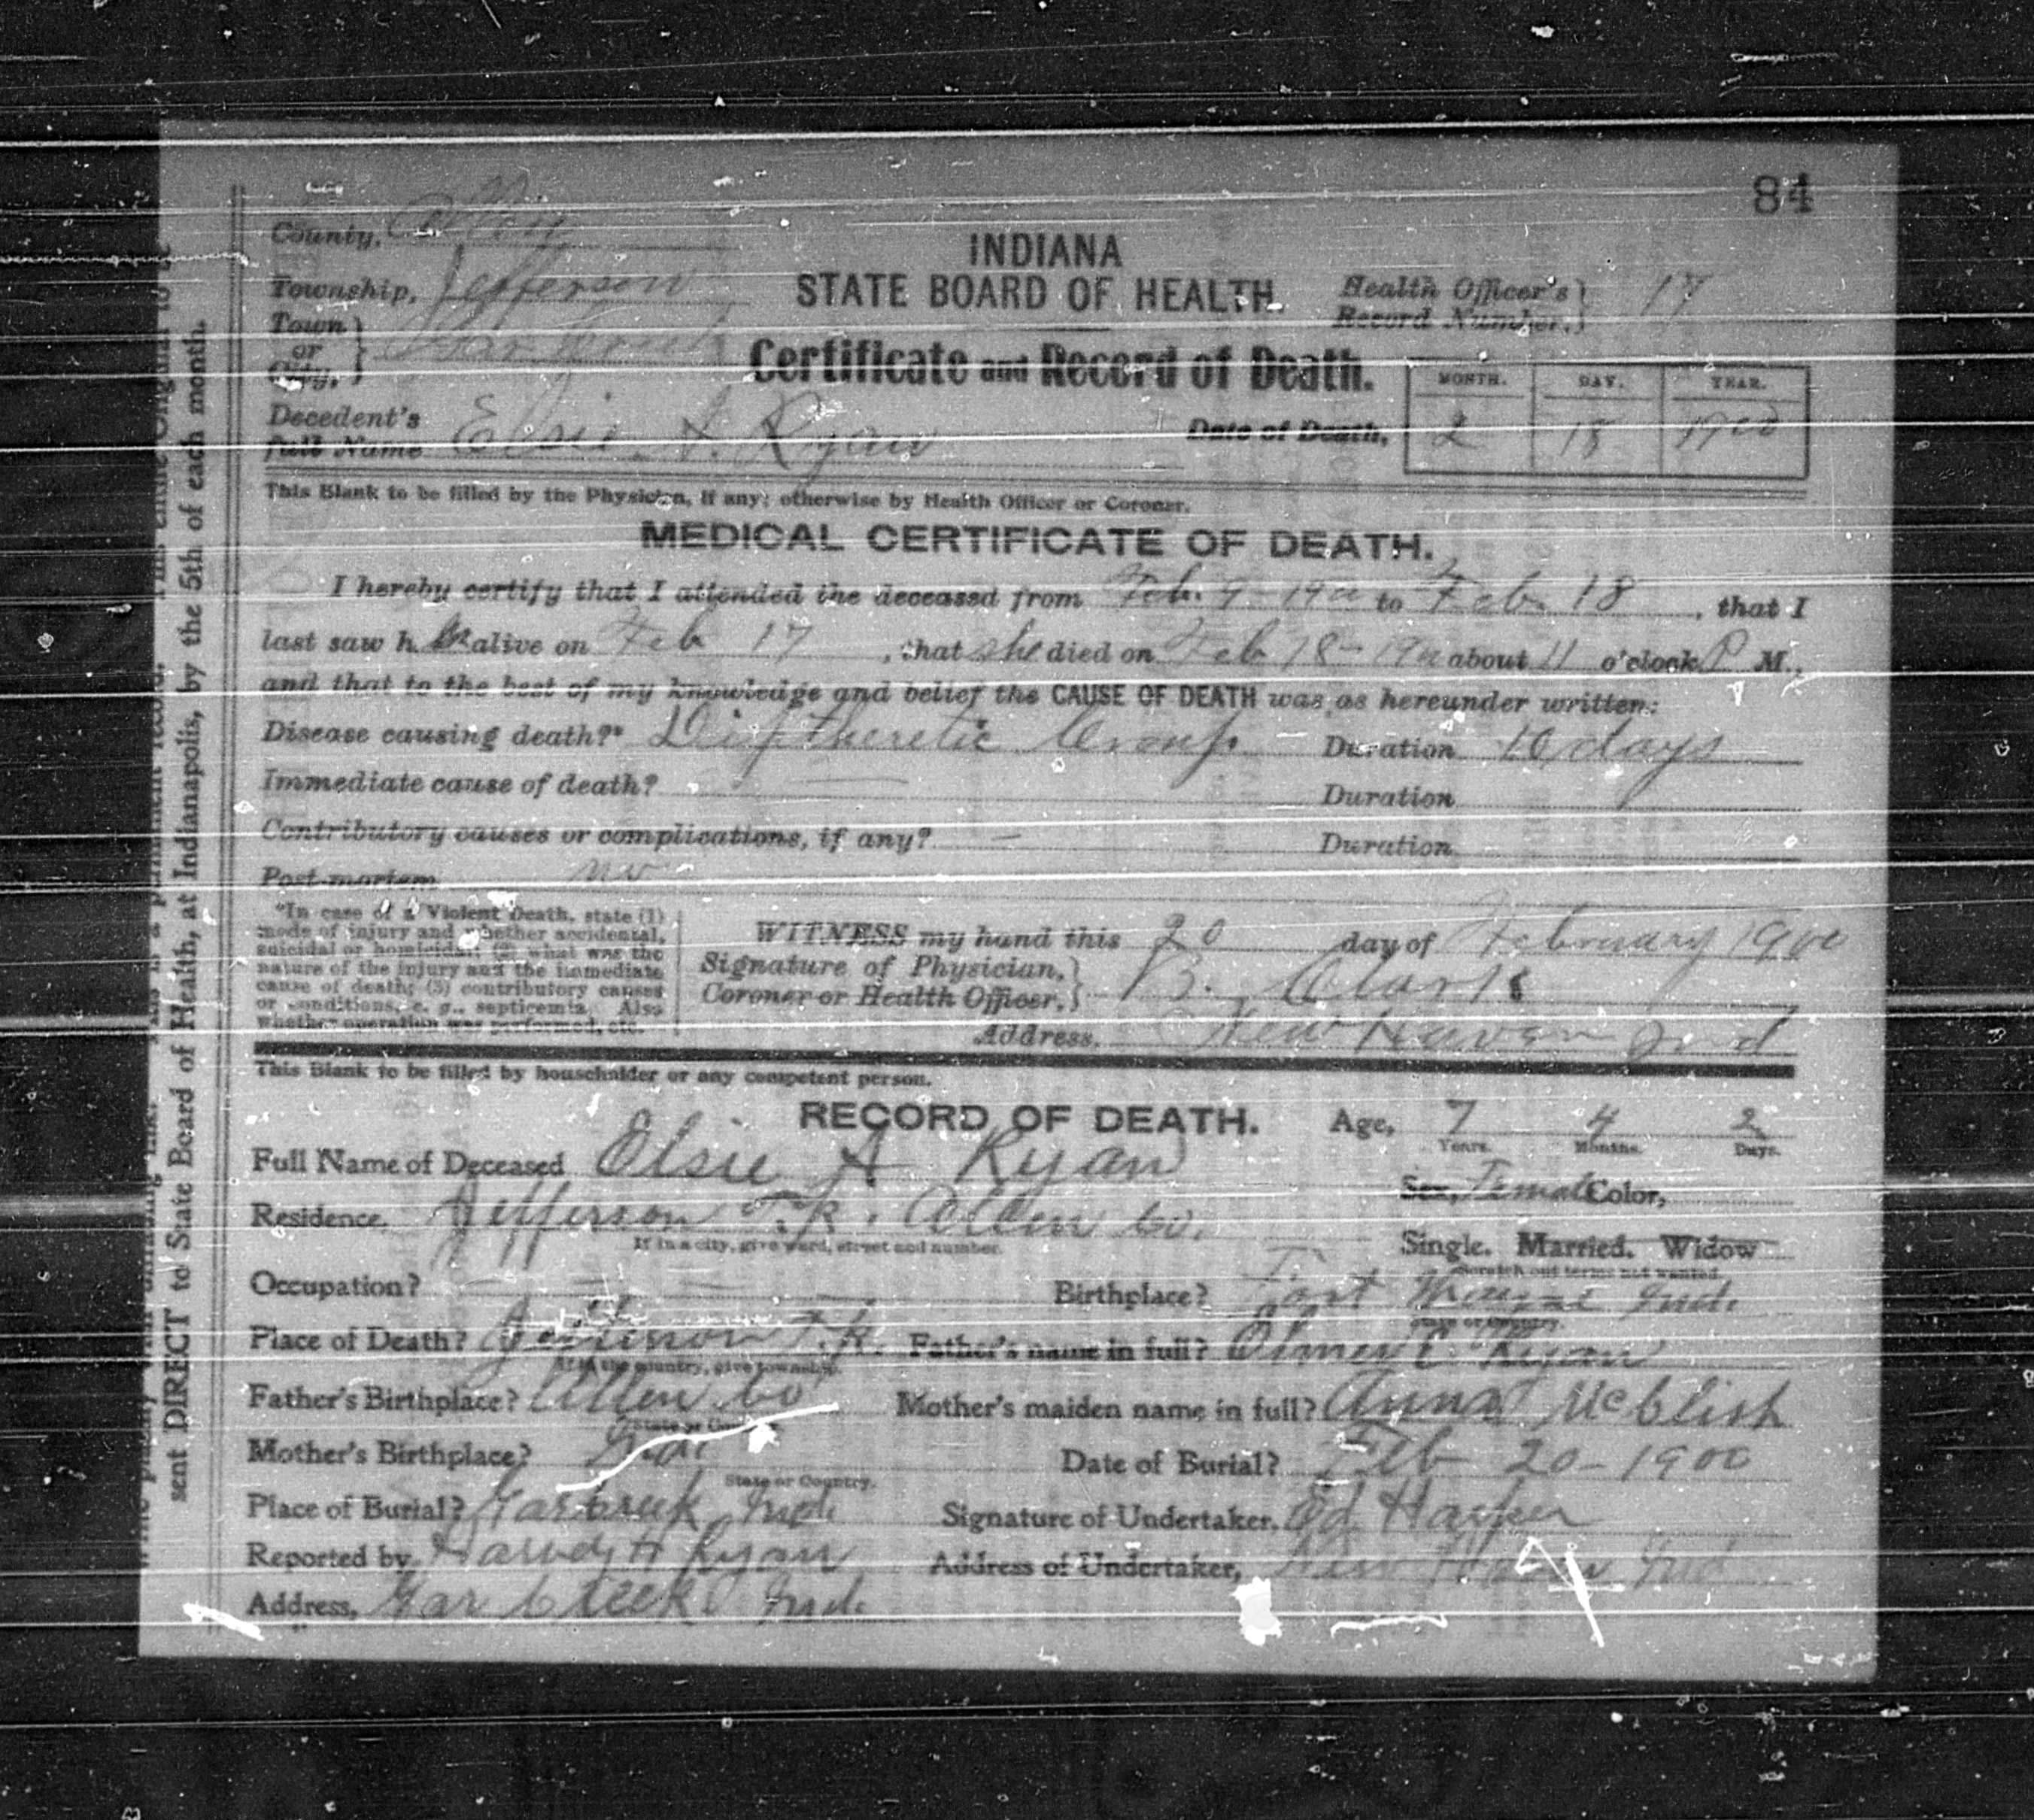 84
County, Allen
INDIANA
Township, Jefferson
STATE BOARD OF HEALTH.
Health Officer's
Record Number, 17
Town
or
City,
Certificate and Record of Death.
MONTH. DAY. YEAR.
Decedent's
full Name Elsie A. Ryan
Date of Death, 2 18 1900
This Blank to be filled by the Physician, if any; otherwise by Health Officer or Coroner.
MEDICAL CERTIFICATE OF DEATH.
I hereby certify that I attended the deceased from Feb. 9 1900 to Feb. 18, that I
last saw h er alive on Feb 17, that she died on Feb 18 - 1900 about 11 o'clock P M.,
and that to the best of my knowledge and belief the CAUSE OF DEATH was as hereunder written:
Disease causing death?* Diptheretic Croup - Duration 10 days
Immediate cause of death? Duration
Contributory causes or complications, if any? — Duration
Post-mortem no
"In case of a Violent Death, state (1)
mode of injury and whether accidental,
suicidal or homicidal; (2) what was the
nature of the injury and the immediate
cause of death; (3) contributory causes
or conditions, e. g., septicemia. Also
whether operation was performed, etc.
WITNESS my hand this 20 day of February 1900
Signature of Physician,
Coroner or Health Officer, B. Clark
Address, New Haven Ind
This Blank to be filled by householder or any competent person.
RECORD OF DEATH.
Age, 7 4 2
Years. Months. Days.
Full Name of Deceased Elsie A Ryan
Sex, Female Color,
Residence, Jefferson T.P. Allen Co.
If in a city, give ward, street and number.
Single. Married. Widow
Scratch out terms not wanted.
Occupation?
Birthplace? Fort Wayne Ind.
State or Country.
Place of Death? Jefferson T.P.
If in the country, give township.
Father's name in full? Elmer C Ryan
Father's Birthplace? Allen Co
State or Country.
Mother's maiden name in full? Anna McClish
Mother's Birthplace? Ind.
State or Country.
Date of Burial? Feb 20 - 1900
Place of Burial? Ind.
Signature of Undertaker, Ed Harper
Reported by, Harvey H Ryan
Address of Undertaker, New Haven Ind
Address, Gar Creek Ind.
sent DIRECT to State Board of Health, at Indianapolis, by the 5th of each month.